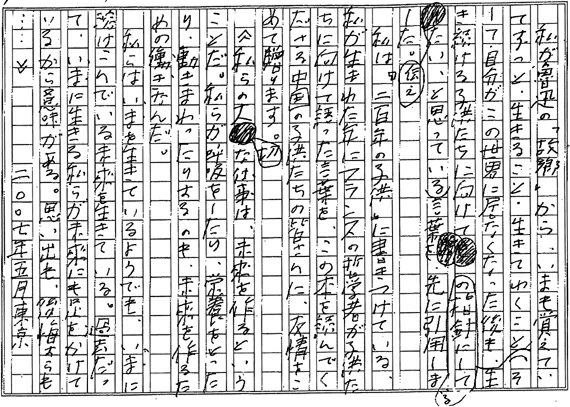 私が魯迅の「故郷」から、いまも覚えてい
てずっと生きること・生きてゆくこと（そ
して自分がこの世界に居なくなった後も、生
き続ける子供たちに向けて）の指針にして
たいと思っている言葉を、先に引用しま
した。
伝え
る
私は『二百年の子供』に書きつけている、
私が生まれた年にフランスの哲学者が子供た
ちに向けて語った言葉を、この本を読んでく
ださる中国の子供たちの皆さんに、友情をこ
めて贈ります。
《私らの大切な仕事は、未来を作るという
ことだ。私らが呼吸をしたり、栄養をとった
り、動きまわったりするのも、未来を作るた
めの働きなんだ。
私らはいまを生きているようでも、いまに
溶けこんでいる未来を生きている。過去だっ
て、いまに生きる私らが未来にも足をかけて
いるから意味がある。思い出も、後悔すらも
……》
二〇〇七年五月東京